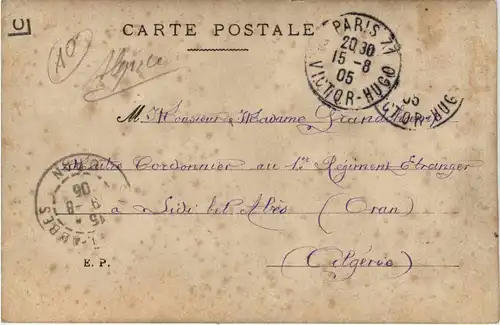 CARTE POSTALE
10
Algérie
PARIS 71
20 30
15 - 8
05
VICTOR - HUGO
05
CTOR - HUG
M. Monsieur & Madame
Maître Cordonnier au 1er Régiment Etranger
à Sidi bel Abès (Oran)
(Algérie)
15 * 9 - 8 05
E. P.